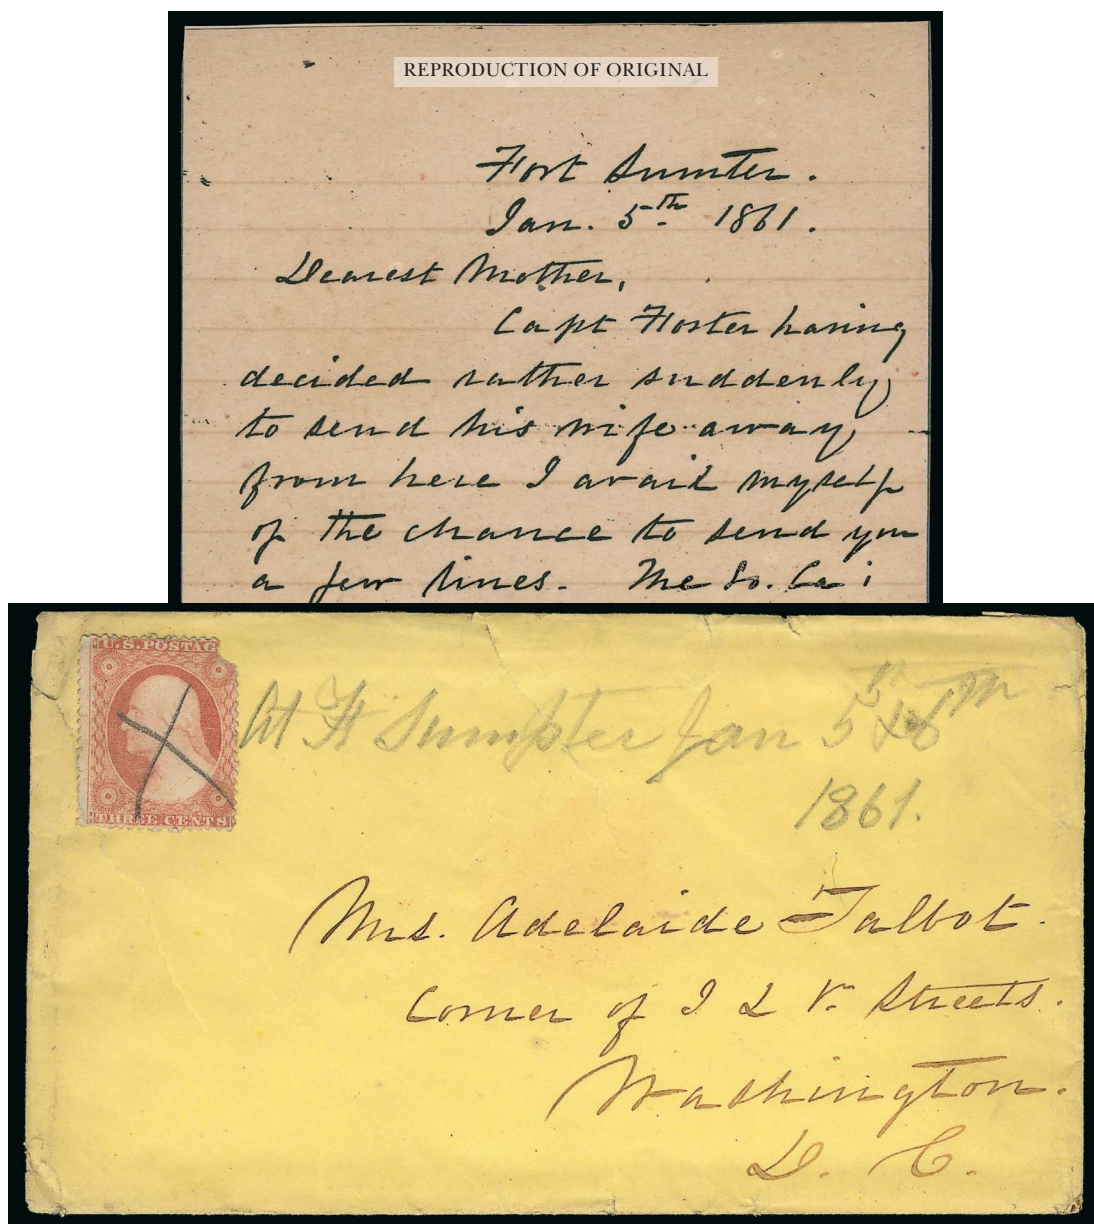 REPRODUCTION OF ORIGINAL
Fort Sumter.
Jan. 5th 1861.
Dearest Mother,
Capt Foster having
decided rather suddenly
to send his wife away
from here I avail myself
of the chance to send you
a few lines. The So. Ca
U.S. POSTAG
THREE CENTS
At Ft Sumpter Jan 5th & 6th
1861.
Mrs. Adelaide Talbot.
Corner of I & Streets.
Washington.
D. C.